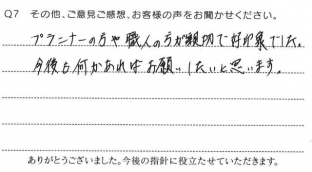 Q7 その他、ご意見ご感想、お客様の声をお聞かせください。
プランナーの方や職人の方が親切で好印象でした。
今後も何かあればお願いしたいと思います。
ありがとうございました。今後の指針に役立たせていただきます。